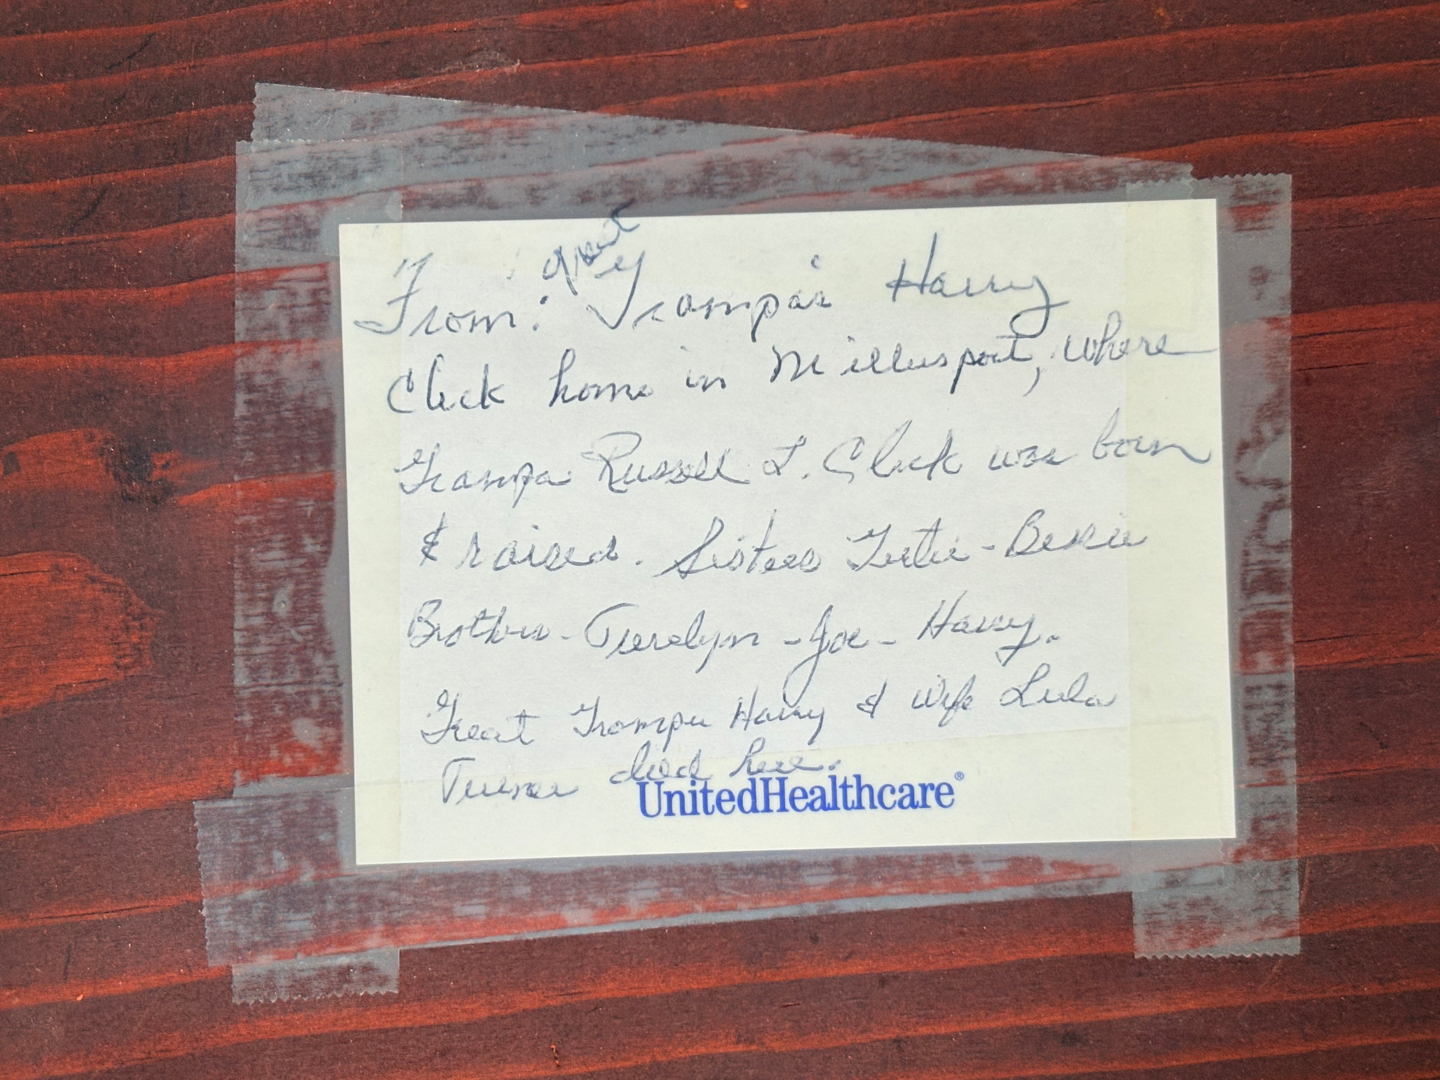 great
From: Grampa's Harry
Click home in Millersport, where
Grampa Russell L. Click was born
& raised. Sisters Tertie - Bessie
Brothers - Turelyn - Joe - Harry.
Great Grampa Harry & wife Lula
Turner died here.
UnitedHealthcare®